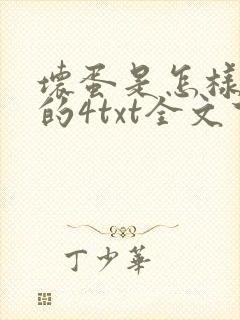 壞蛋是怎樣
的4txt全文下
丁少華